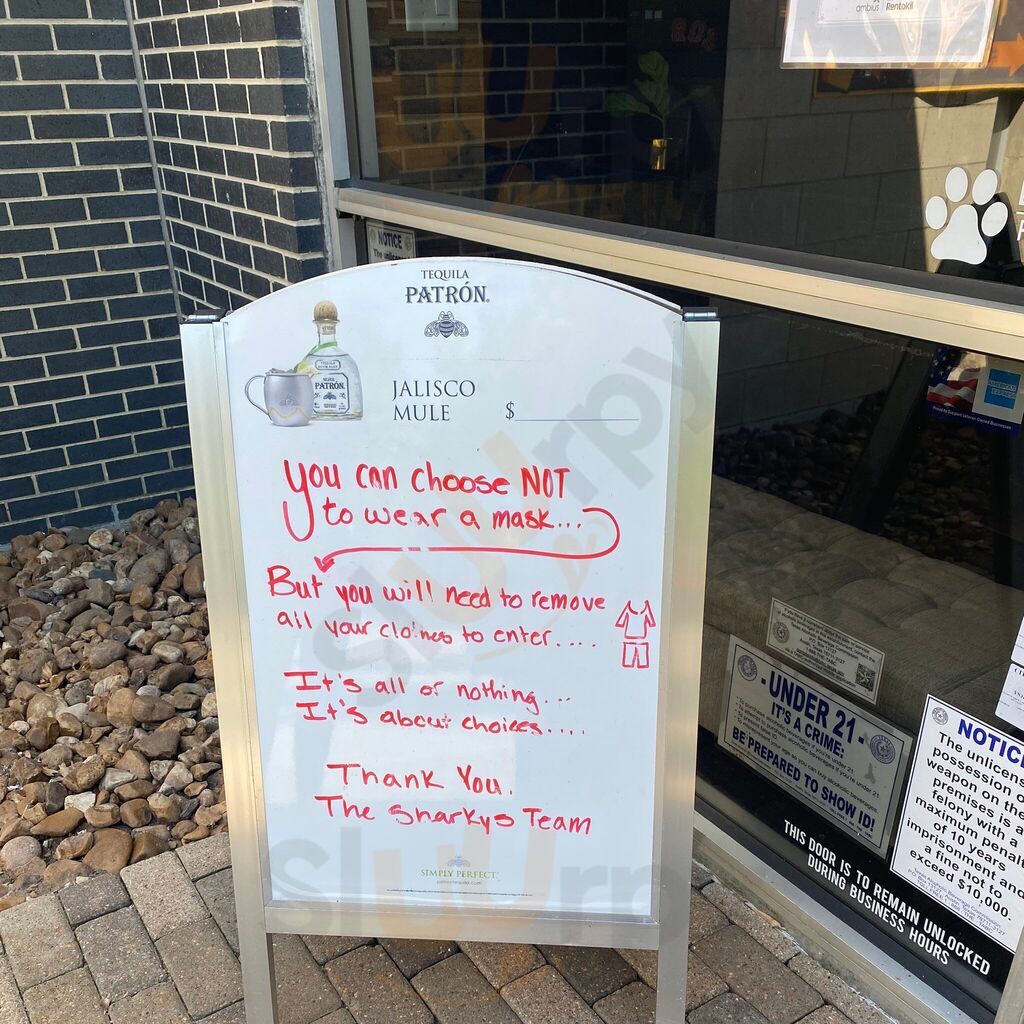 ambius Rentokil
NOTICE
TEQUILA
PATRÓN
JALISCO
MULE $
You can choose NOT
to wear a mask...
But you will need to remove
all your clothes to enter....
It's all or nothing...
It's about choices....
Thank You.
The Sharkys Team
SIMPLY PERFECT
AMERICAN
EXPRESS
Proud to Support Veteran Owned Businesses
- UNDER 21 -
IT'S A CRIME:
BE PREPARED TO SHOW ID!
NOTIC
The unlicens
possession o
weapon on the
premises is a
felony with a
maximum penal
of 10 years
imprisonment and
a fine not to
exceed $10,000.
THIS DOOR IS TO REMAIN UNLOCKED
DURING BUSINESS HOURS
sluurpy
sluurpy